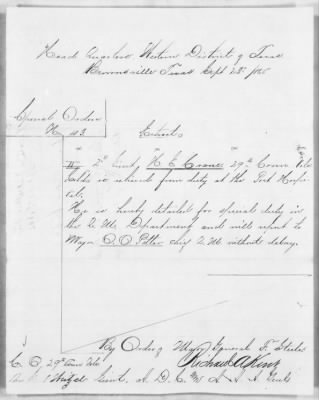 Head Quarters Western District of Texas
Brownsville Texas Sept 28th 1865
Special Orders
No 43
Extract
2d Lieut. H. E. Crane 29th Conn Vols
Cold'd is relieved from duty at the Post Hospi-
tal.
He is hereby detailed for special duty in
the Q. M. Department and will report to
Major O. O. Potter chief Q. M. without delay.
By Order of Maj General F. Steele
Richard A King
C. O. 29th Conn Vols
Lieut. A. D. C. and A. A. A. Genl